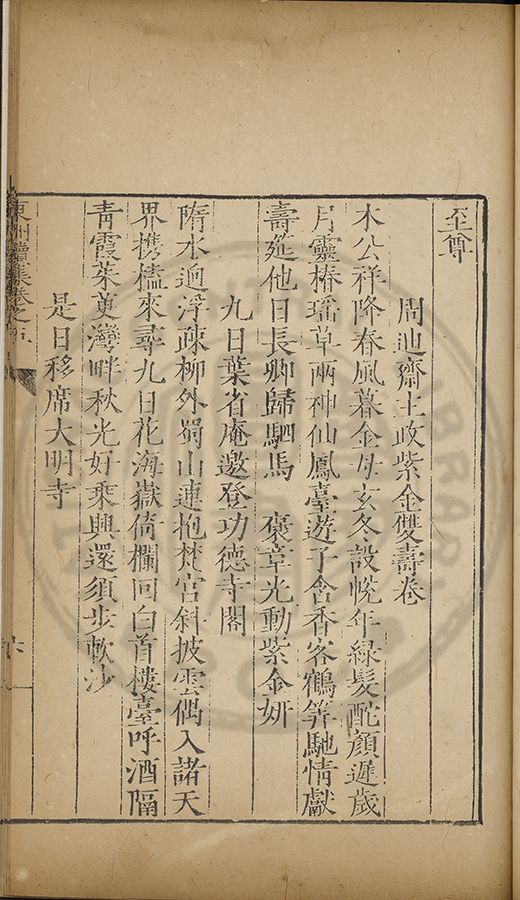 至尊
周迪齋主政紫金雙壽卷
木公祥降春風暮金母玄冬設帨年綠髮酡顏遲歲
月靈椿瑤草兩神仙鳳臺遊子含香客鶴筭馳情獻
壽筵他日長卿歸駟馬 褒章光動紫金妍
九日葉省庵邀登功德寺閣
隋水迴浮疎柳外蜀山蓮抱梵宮斜披雲偶入諸天
界携榼來尋九日花海嶽倚欄回白首樓臺呼酒隔
青霞茱萸灣畔秋光好乘興還須步軟沙
是日移席大明寺
東洲續集卷之五
六